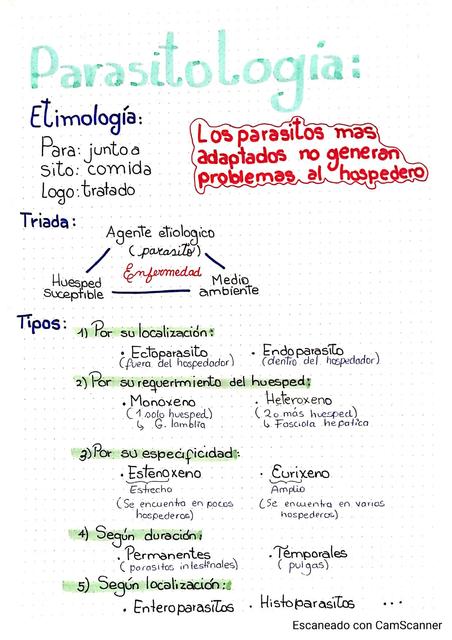 Parasitología:
Etimología:
Para: junto a
sito: comida
Logo: tratado
Los parasitos mas
adaptados no generan
problemas al hospedero
Triada:
Agente etiologico
(parasito)
Enfermedad
Huesped
suceptible
Medio
ambiente
Tipos:
1) Por su localización:
· Ectoparasito
(fuera del hospedador)
· Endoparasito
(dentro del hospedador)
2) Por su requerimiento del huesped:
· Monoxeno
(1 solo huesped)
↳ G. lamblia
· Heteroxeno
(2 o más huesped)
↳ Fasciola hepatica
3) Por su especificidad:
· Estenoxeno
Estrecho
(Se encuentra en pocos
hospederos)
· Eurixeno
Amplio
(Se encuentra en varios
hospederos)
4) Según duración:
· Permanentes
(parasitos intestinales)
· Temporales
(pulgas)
5) Según localización:
· Enteroparasitos · Histoparasitos ...
Escaneado con CamScanner